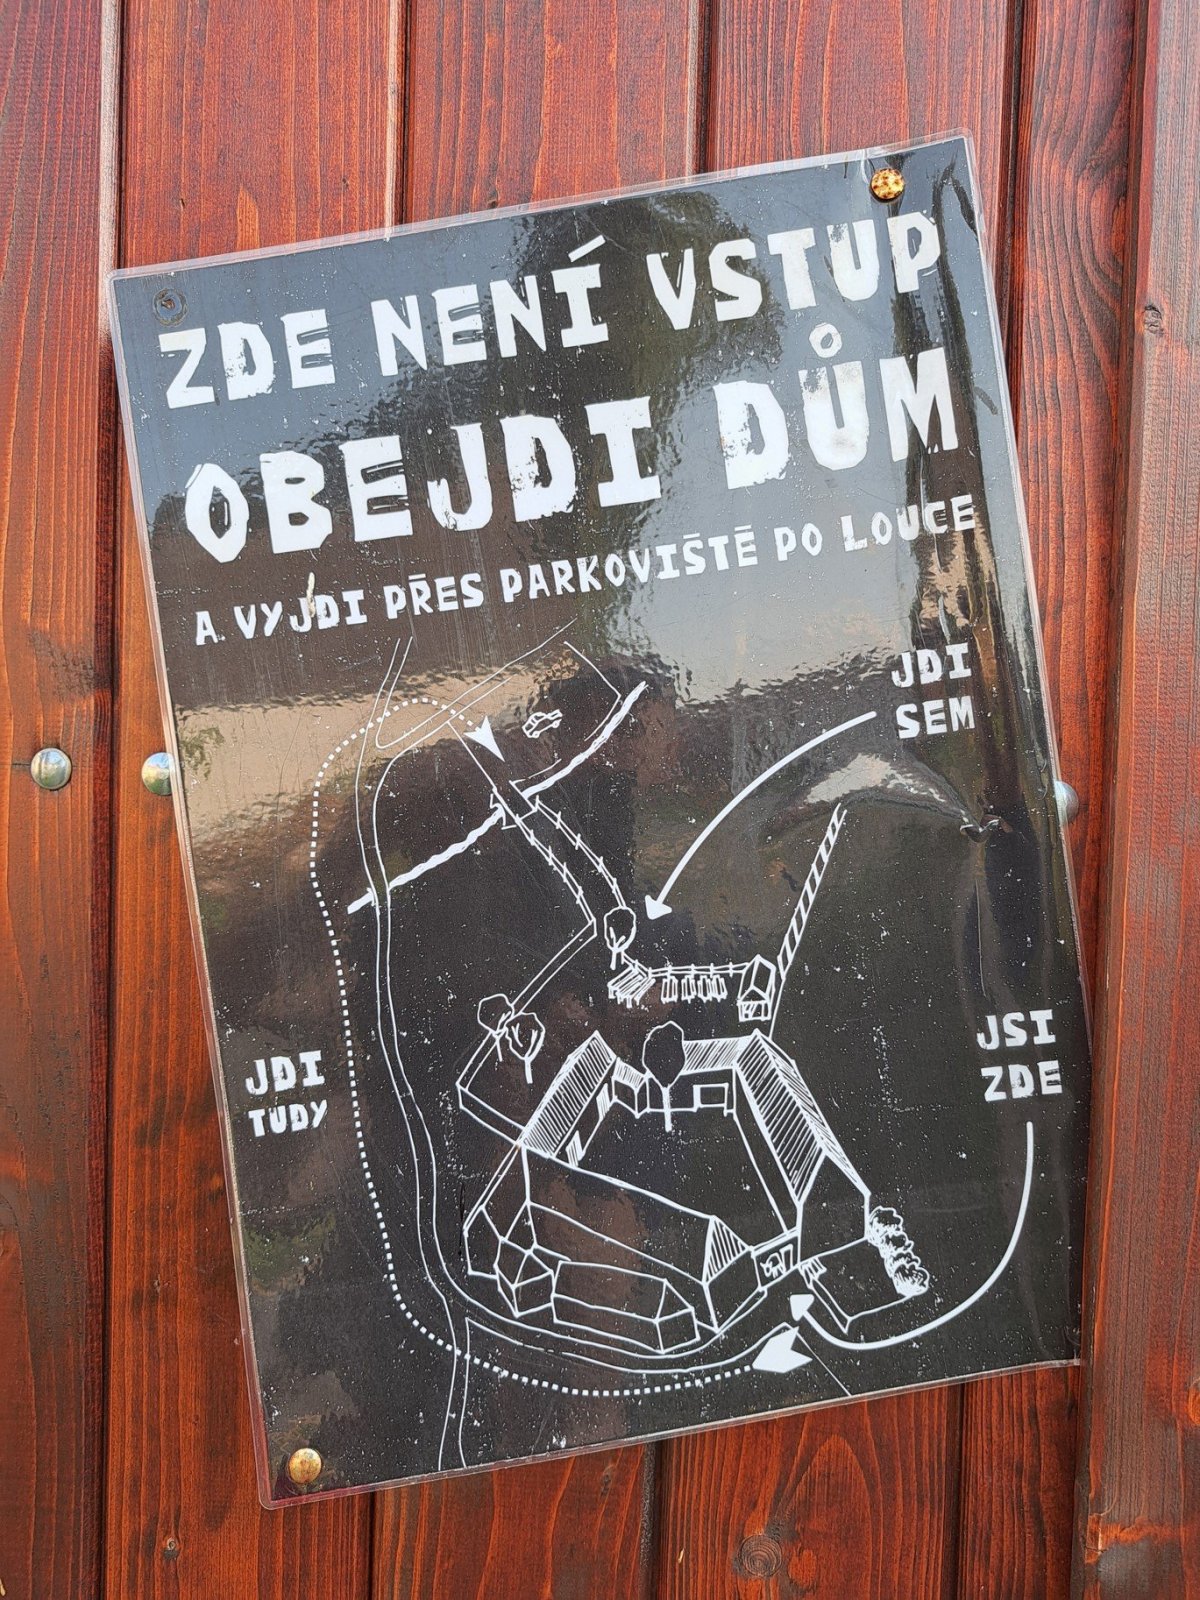 ZDE NENÍ VSTUP
OBEJDI DŮM
A VYJDI PŘES PARKOVIŠTĚ PO LOUCE
JDI
SEM
JSI
ZDE
JDI
TUDY